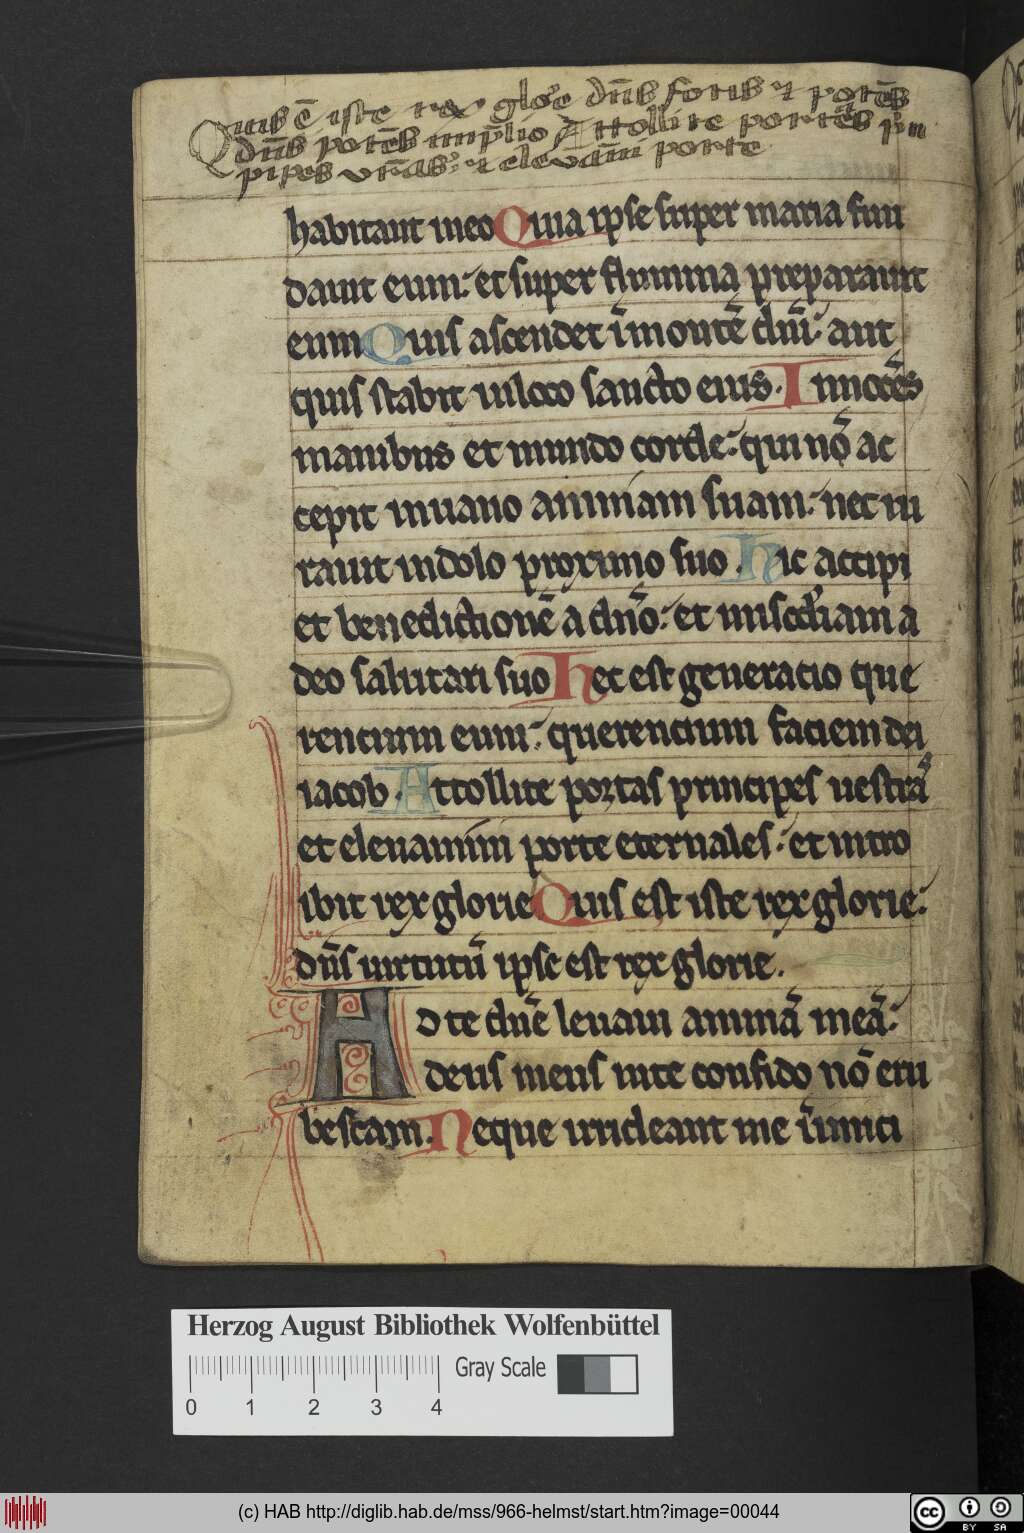 Quis ē iste rex glo͛e dn̄s fortis ⁊ potēs
dn̄s potēs inp̄lio Attollite portas p͛n
pipes vr̄as ⁊ elevam̄i porte
habitant in eo Quia ipse super maria fun
dauit eum: et super flumina preparauit
eum Quis ascendet ī montē dn̄i: aut
quis stabit in loco sancto eius. Innocēs
manibus et mundo corde: qui nō ac
cepit in uano animam suam: nec iu
rauit in dolo proximo suo. Hic accipi
et benedictionē a dn̄o: et mis͛cdiam a
deo salutari suo Hec est generatio que
rencium eum: querencium faciem dei
iacob. Attollite portas principes uestrā
et eleuamini porte eternales: et intro
ibit rex glorie Quis est iste rex glorie:
dn̄s uirtutū ipse est rex glorie.
Ad te dn̄e leuaui animā meā:
deus meus in te confido nō eru
bescam. Neque irrideant me īimici
Herzog August Bibliothek Wolfenbüttel
Gray Scale
0 1 2 3 4
(c) HAB http://diglib.hab.de/mss/966-helmst/start.htm?image=00044
cc BY SA